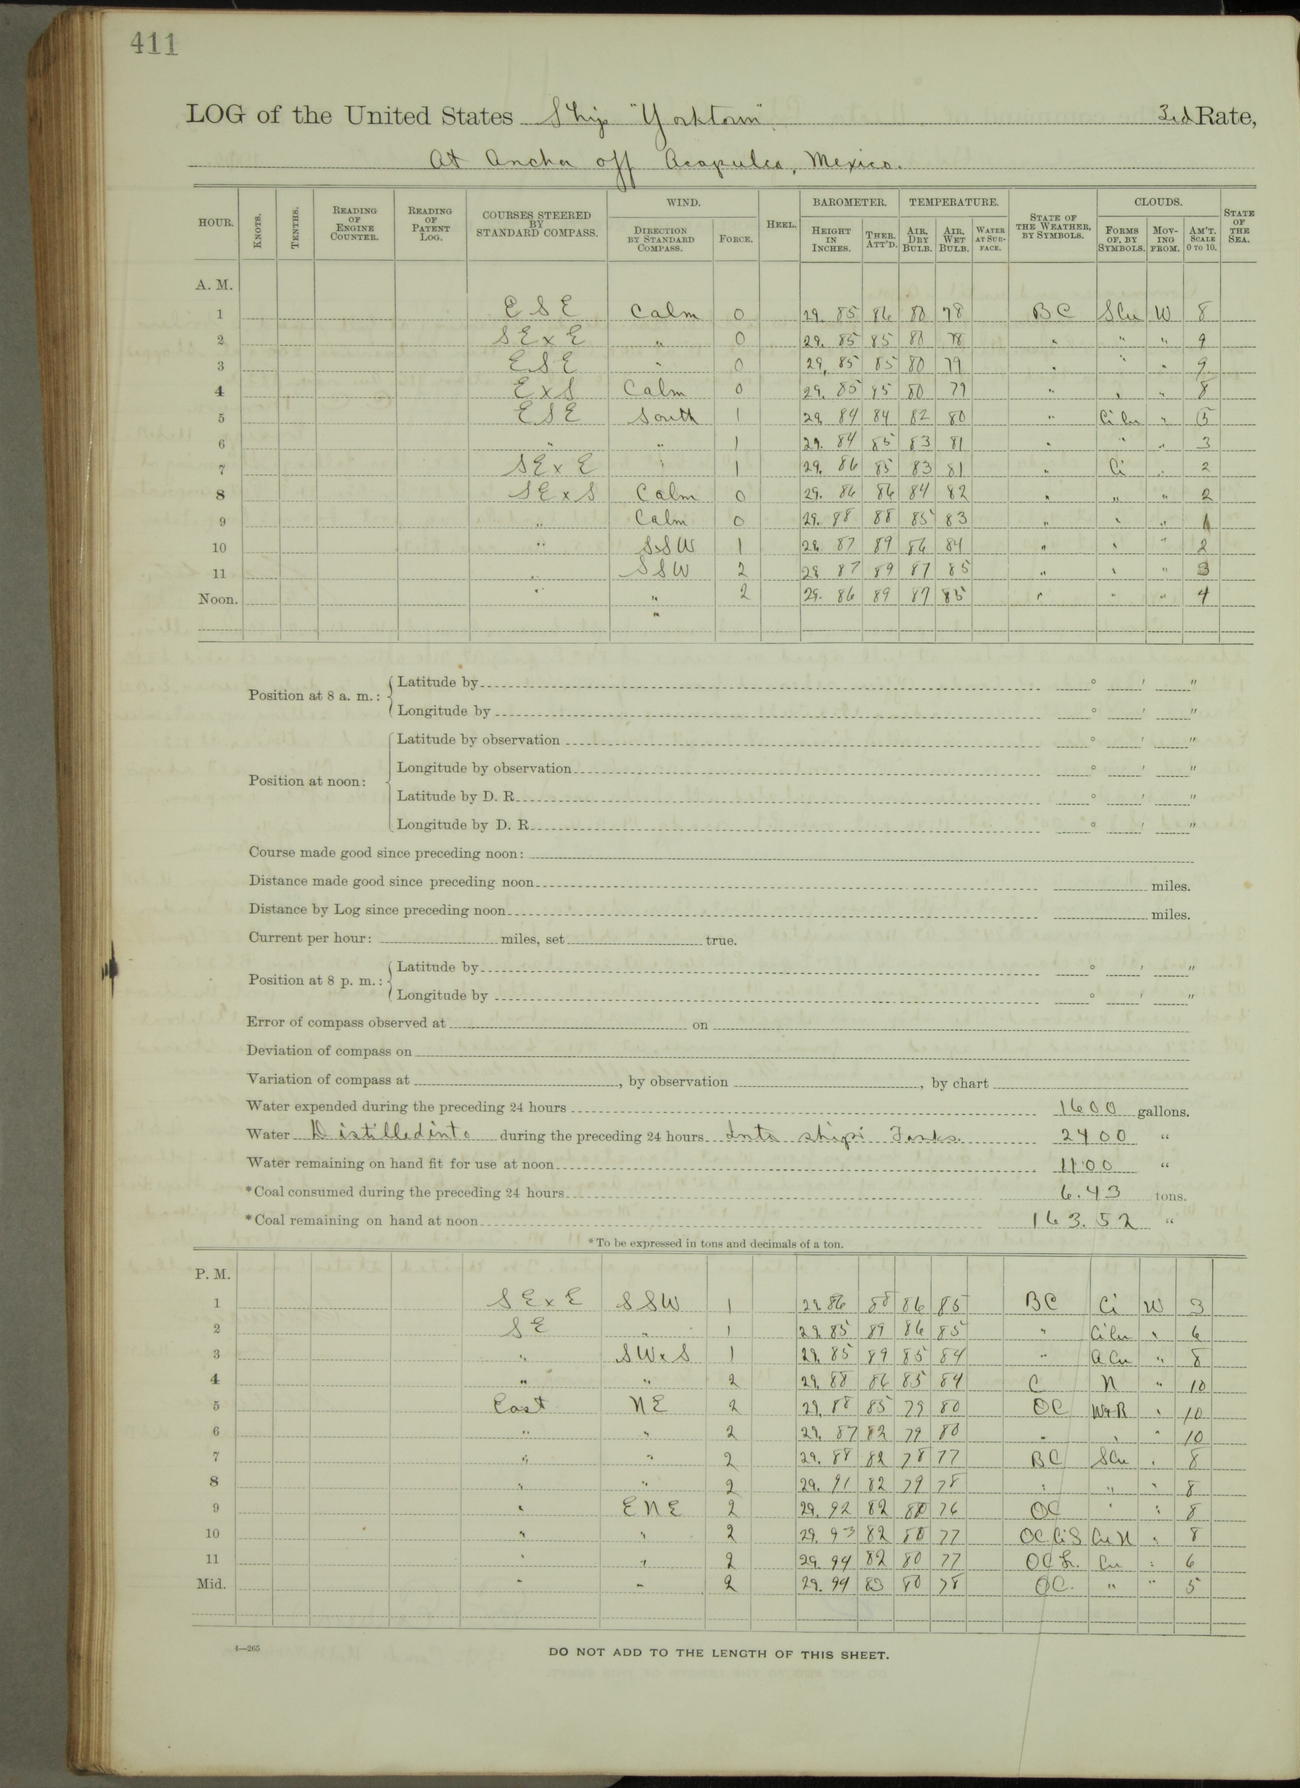 411
LOG of the United States Ship "Yorktown" 3rd Rate,
At Anchor off Acapulco, Mexico.
HOUR. KNOTS. TENTHS. READING OF ENGINE COUNTER. READING OF PATENT LOG. COURSES STEERED BY STANDARD COMPASS. WIND. DIRECTION BY STANDARD COMPASS. FORCE. HEEL. BAROMETER. HEIGHT IN INCHES. THER. ATT'D. TEMPERATURE. AIR, DRY BULB. AIR, WET BULB. WATER AT SURFACE. STATE OF THE WEATHER, BY SYMBOLS. CLOUDS. FORMS OF, BY SYMBOLS. MOVING FROM. AM'T. SCALE 0 TO 10. STATE OF THE SEA.
A. M.
1 ESE Calm 0 29.85 86 80 78 BC SCu W 8
2 SExE " 0 29.85 85 80 78 " " " 9
3 ESE " 0 29.85 85 80 79 " " " 9
4 ExS Calm 0 29.85 85 80 79 " " " 8
5 ESE South 1 29.84 84 82 80 " CiCu " 5
6 " " 1 29.84 85 83 81 " " " 3
7 SExE " 1 29.86 85 83 81 " Ci " 2
8 SExS Calm 0 29.86 86 84 82 " " " 2
9 " Calm 0 29.88 88 85 83 " " " 1
10 " SSW 1 29.87 89 86 84 " " " 2
11 " SSW 2 29.87 89 87 85 " " " 3
Noon. " " 2 29.86 89 87 85 " " " 4
"
Position at 8 a. m.: Latitude by ° ′ ″
Longitude by ° ′ ″
Position at noon: Latitude by observation ° ′ ″
Longitude by observation ° ′ ″
Latitude by D. R. ° ′ ″
Longitude by D. R. ° ′ ″
Course made good since preceding noon:
Distance made good since preceding noon miles.
Distance by Log since preceding noon miles.
Current per hour: miles, set true.
Position at 8 p. m.: Latitude by ° ′ ″
Longitude by ° ′ ″
Error of compass observed at on
Deviation of compass on
Variation of compass at , by observation , by chart
Water expended during the preceding 24 hours 1600 gallons.
Water Distilled into during the preceding 24 hours Into ships Tanks. 2400 "
Water remaining on hand fit for use at noon 1100 "
*Coal consumed during the preceding 24 hours 6.43 tons.
*Coal remaining on hand at noon 163.52 "
*To be expressed in tons and decimals of a ton.
P. M.
1 SExE SSW 1 29.86 88 86 85 BC Ci W 3
2 SE " 1 29.85 89 86 85 " CiCu " 6
3 " SWxS 1 29.85 89 85 84 " ACu " 8
4 " " 2 29.88 86 85 84 C N " 10
5 East NE 2 29.88 85 79 80 OC " 10
6 " " 2 29.87 82 79 80 " " " 10
7 " " 2 29.88 82 78 77 BC SCu " 8
8 " " 2 29.91 82 79 78 " " " 8
9 " ENE 2 29.92 82 80 76 OC " " 8
10 " " 2 29.93 82 80 77 CuN " 8
11 " " 2 29.94 82 80 77 Cu " 6
Mid. " " 2 29.94 83 80 78 OC. " " 5
4—265
DO NOT ADD TO THE LENGTH OF THIS SHEET.